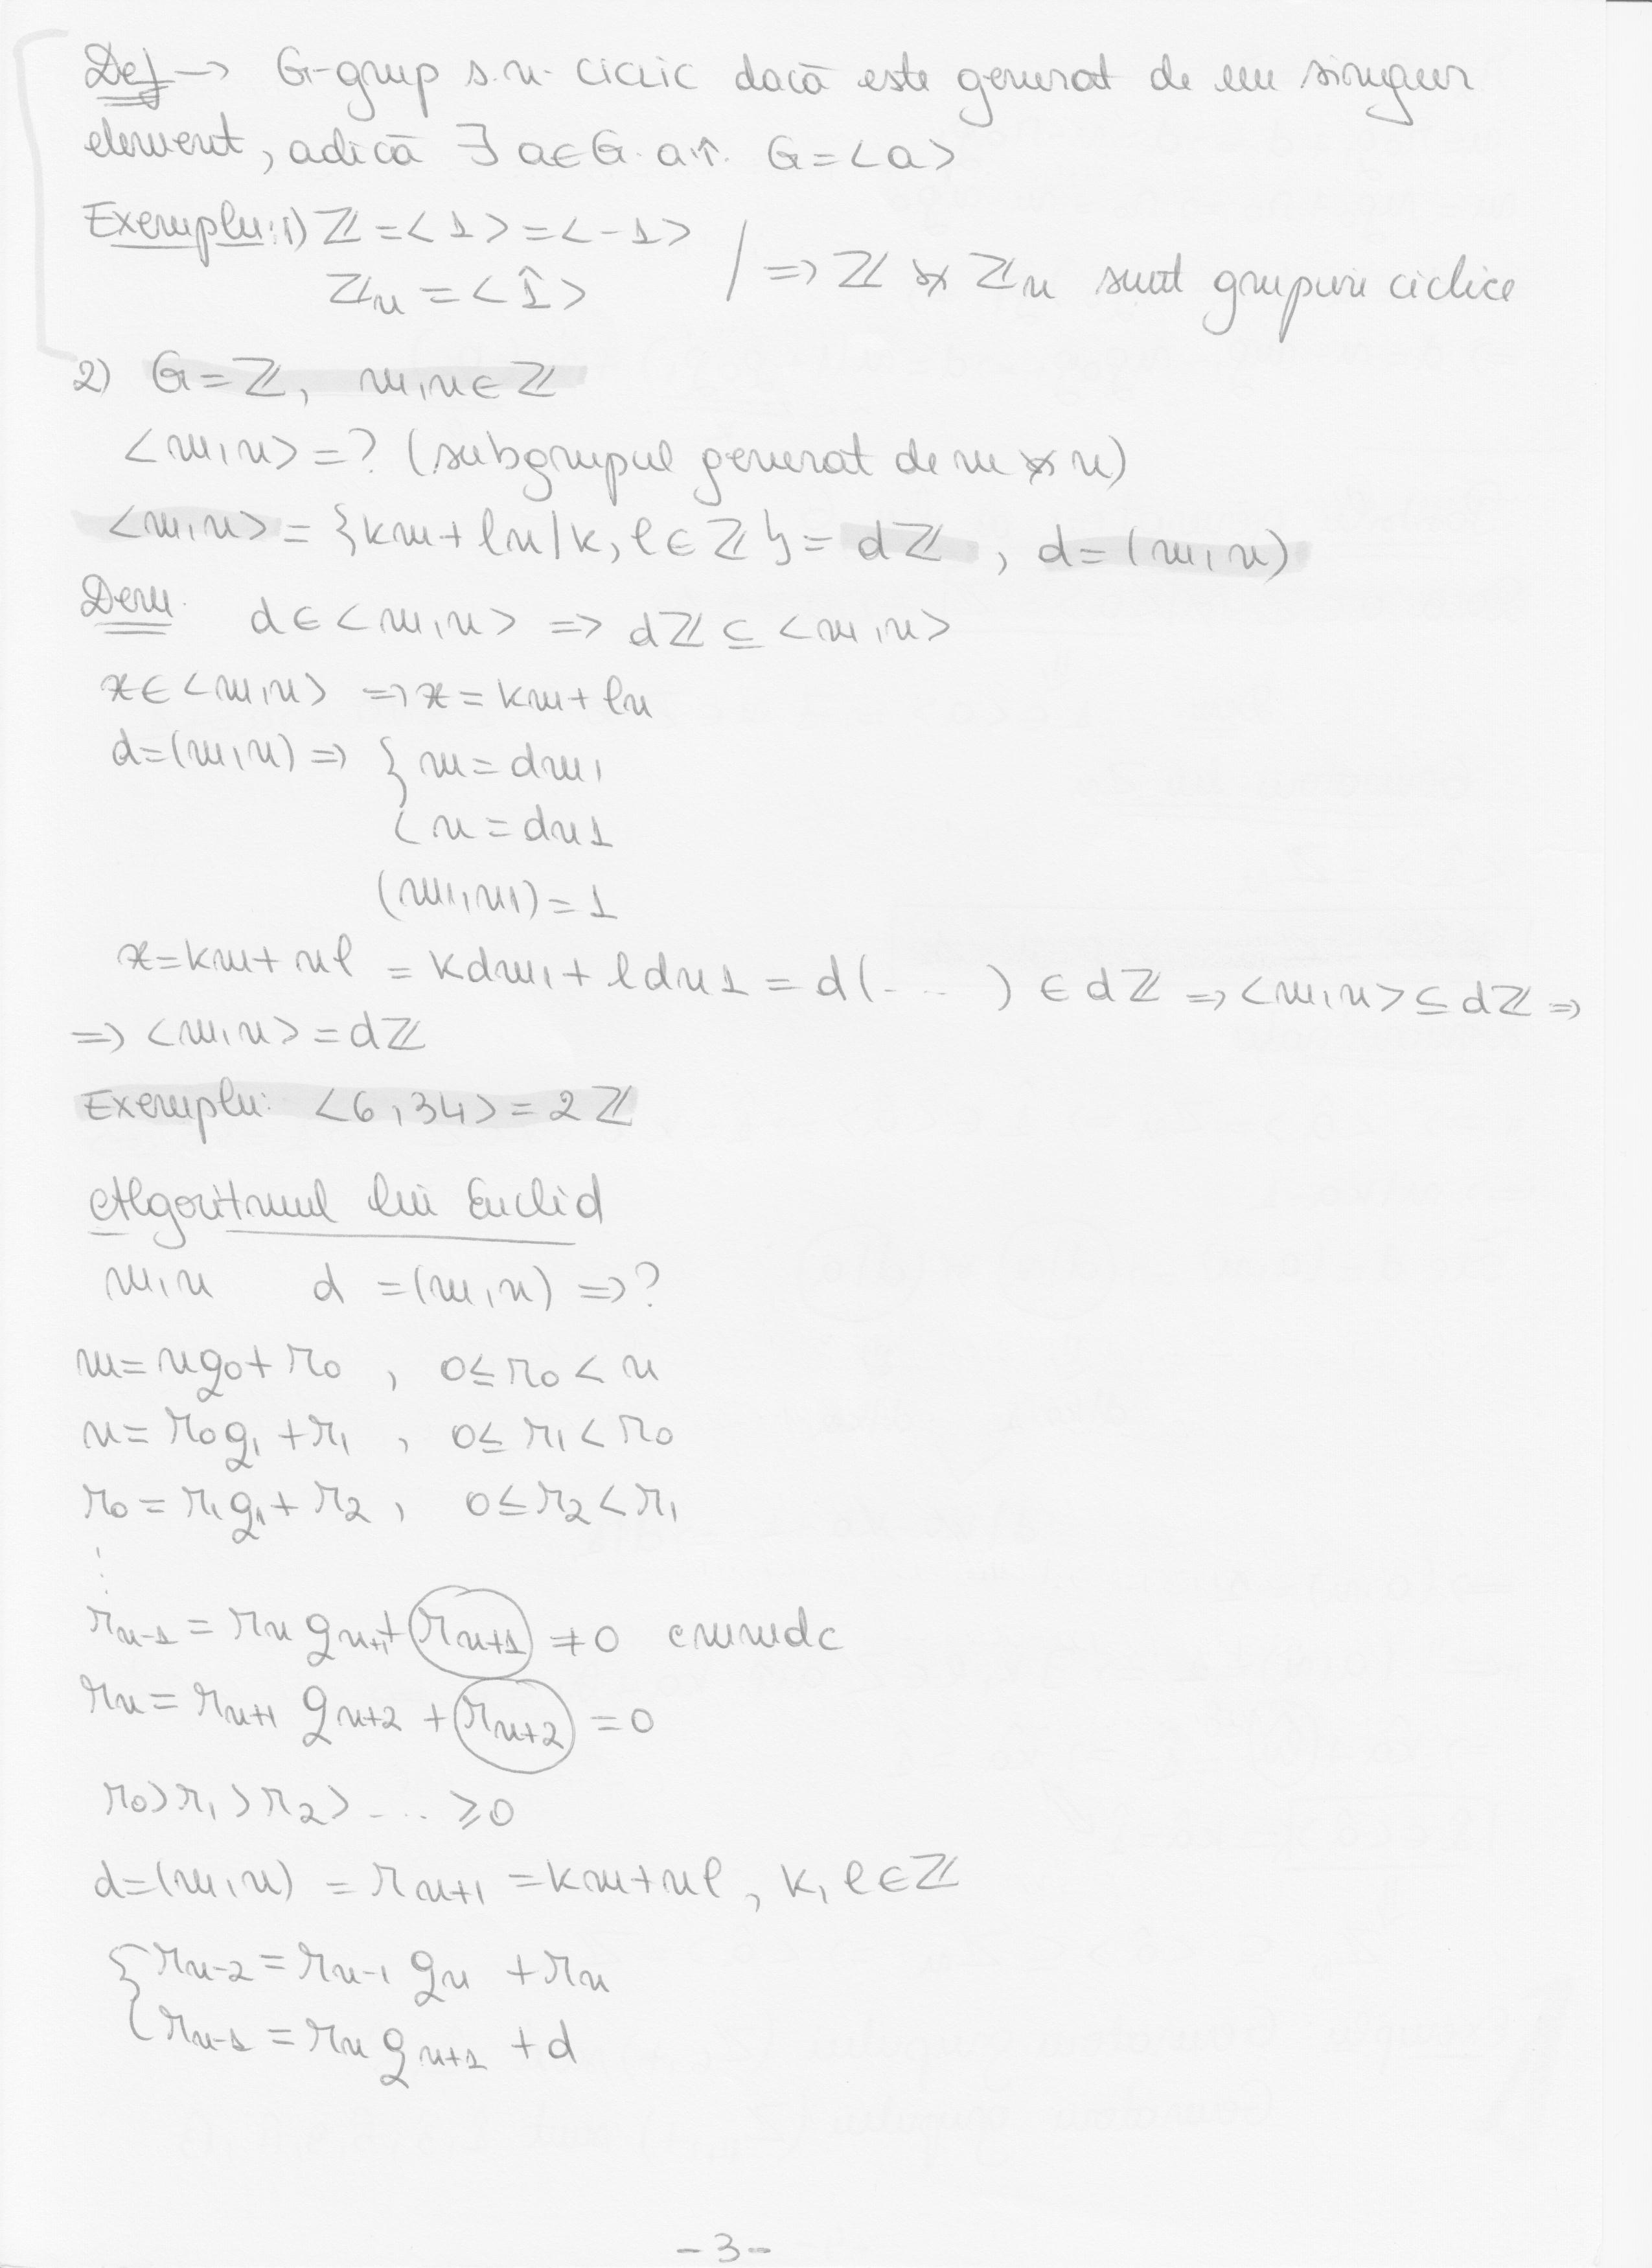 Def → G-grup s.n. ciclic dacă este generat de un singur
element, adică ∃ a∈G a.î. G=<a>
Exemplu: 1) ℤ=<1>=<-1>
ℤn=<1̂> / => ℤ și ℤn sunt grupuri ciclice
2) G=ℤ, m,n∈ℤ
<m,n>=? (subgrupul generat de m și n)
<m,n>={km+ln/k,l∈ℤ}=dℤ, d=(m,n)
Dem. d∈<m,n> => dℤ⊆<m,n>
x∈<m,n> => x=km+ln
d=(m,n) => { m=dm1
n=dn1
(m1,n1)=1
x=km+nl = kdm1+ldn1=d(.... ) ∈dℤ => <m,n>⊆dℤ =>
=> <m,n>=dℤ
Exemplu: <6,34>=2ℤ
Algoritmul lui Euclid
m,n d =(m,n) => ?
m=nq0+r0 , 0≤r0<n
n=r0q1+r1 , 0≤r1<r0
r0=r1q1+r2 , 0≤r2<r1
⋮
rn-1=rn qn+1+rn+1 ≠0 cmmdc
rn=rn+1 qn+2+rn+2 =0
r0>r1>r2> .... ≥0
d=(m,n) = rn+1 =km+nl, k,l∈ℤ
{ rn-2=rn-1 qn +rn
rn-1=rn qn+1 +d
-3-